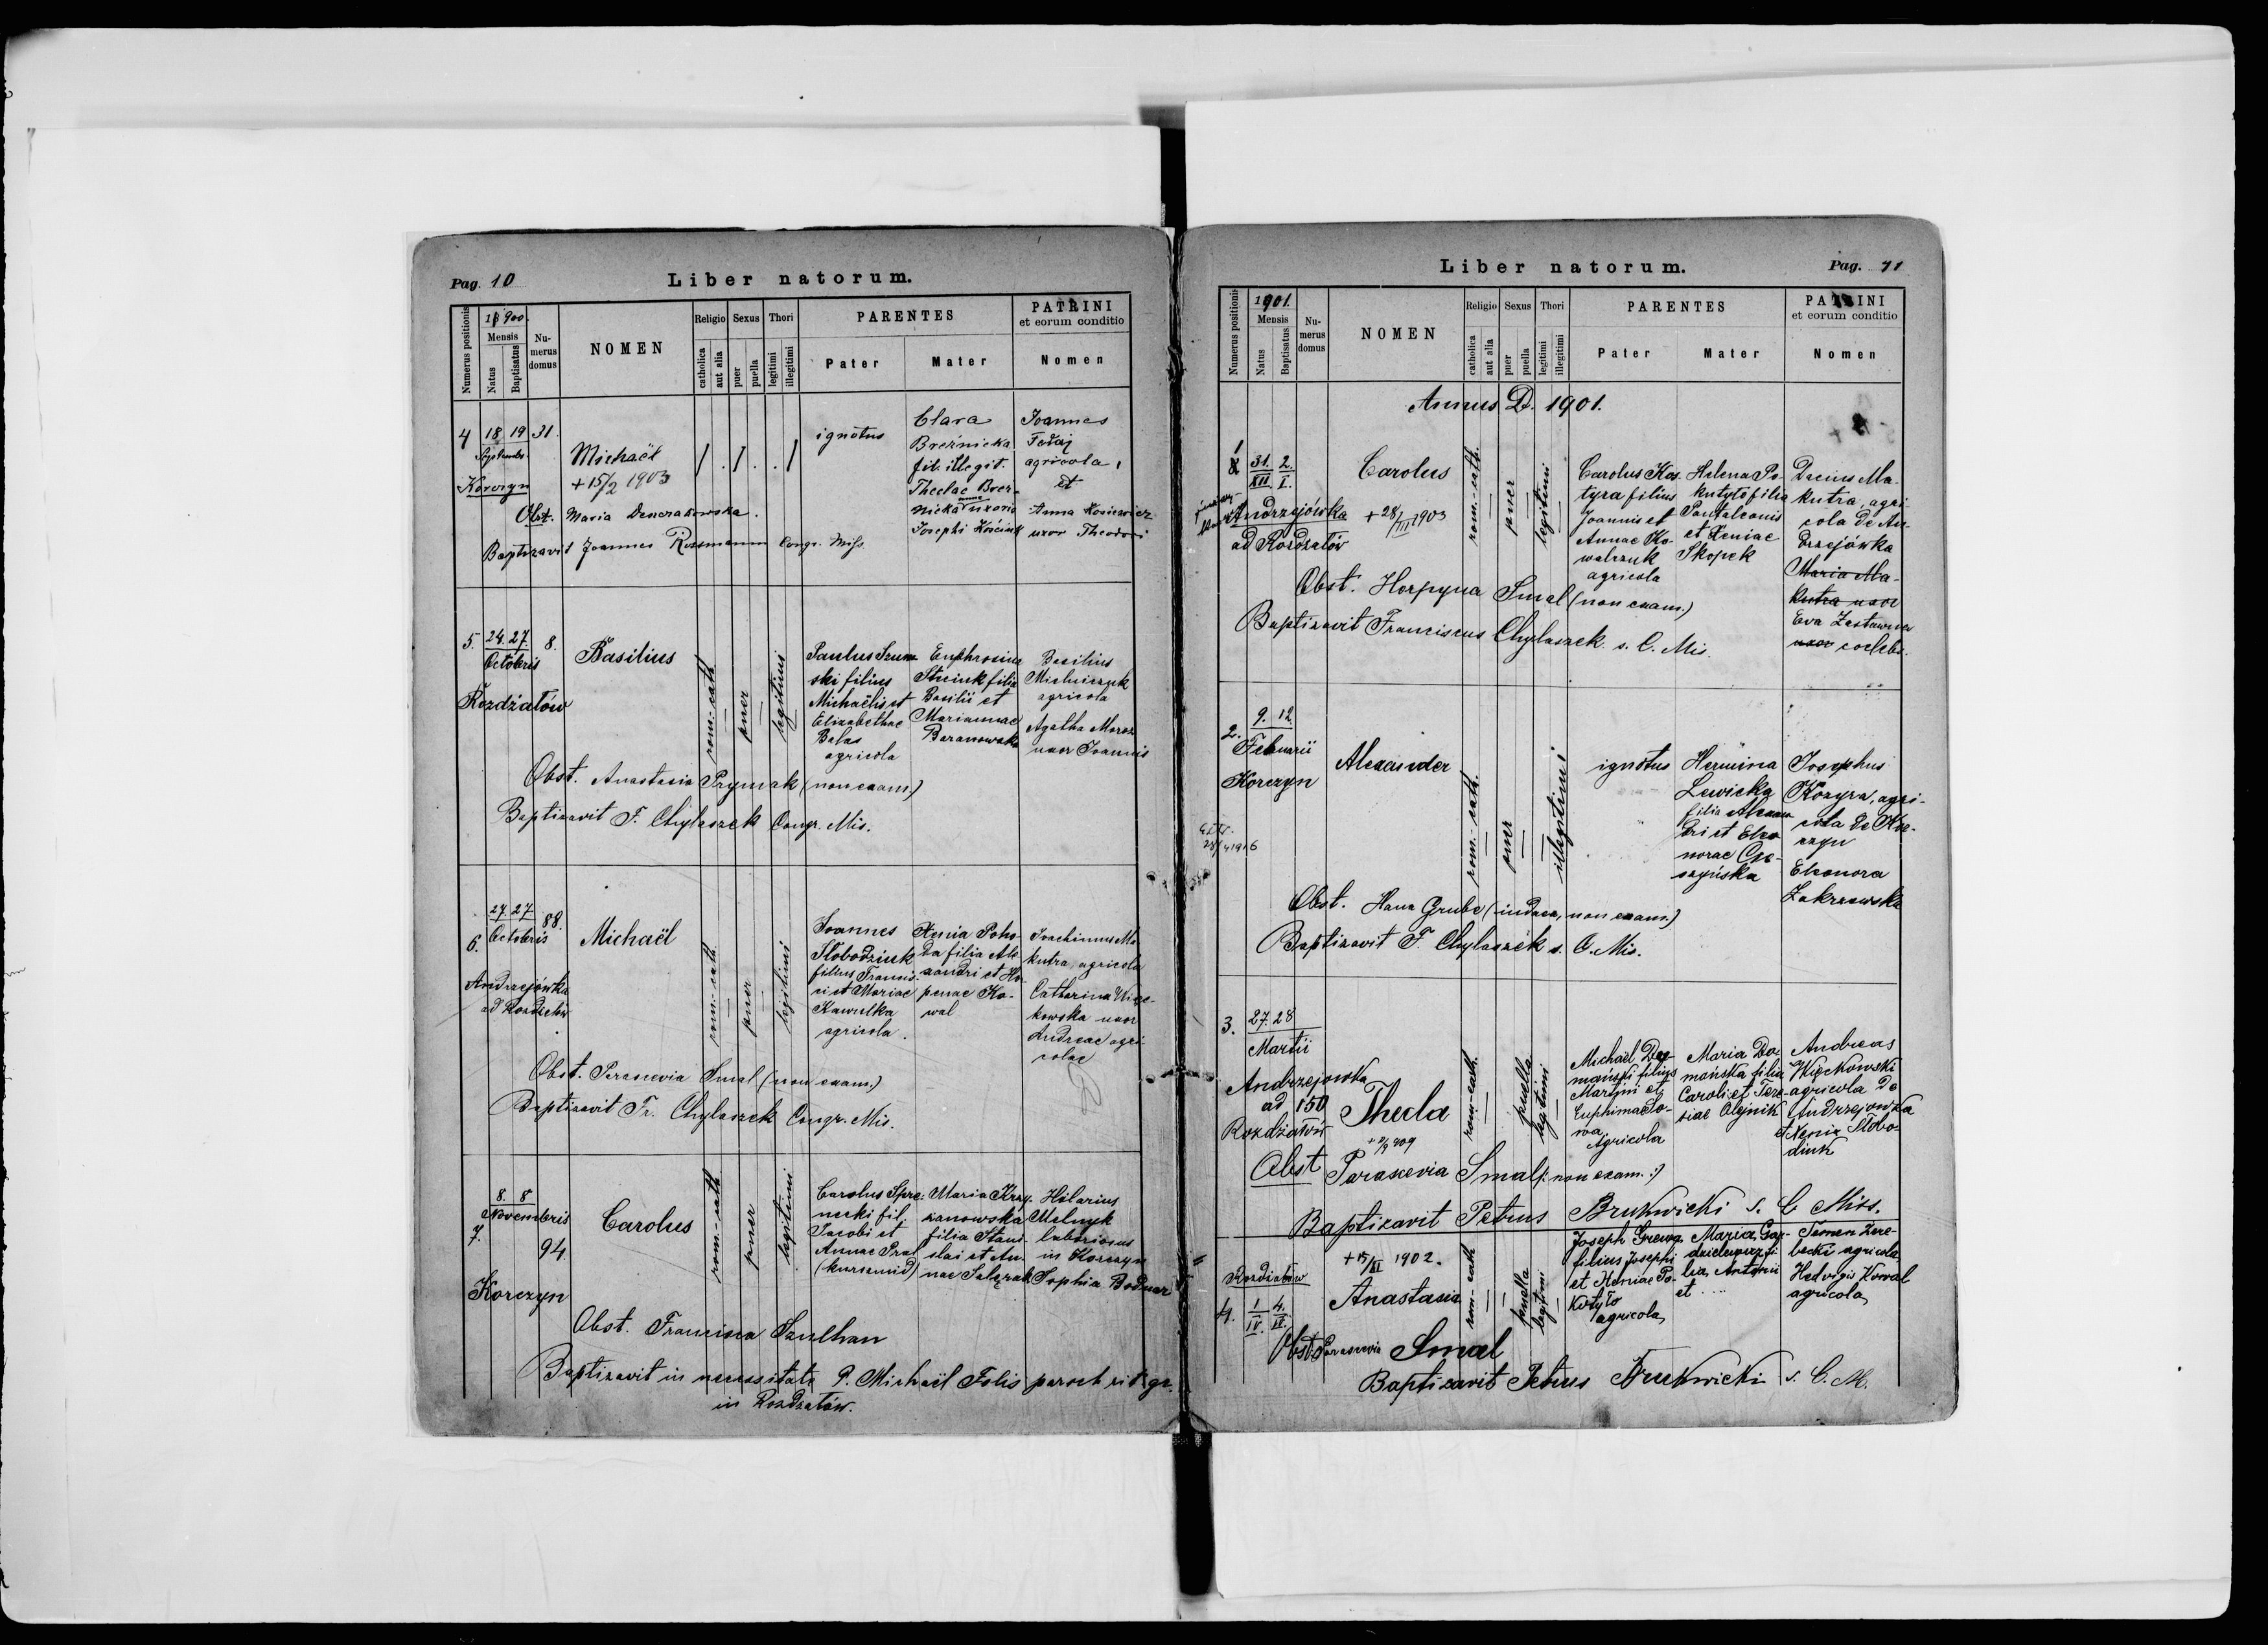 Pag. 10
Liber natorum.
Numerus positionis
1900.
Mensis
Natus
Baptisatus
Nu-
merus
domus
NOMEN
Religio
catholica
aut alia
Sexus
puer
puella
Thori
legitimi
illegitimi
PARENTES
Pater
Mater
PATRINI
et eorum conditio
Nomen
4
18 19
Septembr.
31.
Korczyn
Michaël
+ 15/2 1903
/ . / . . /
ignotus
Clara
Breźnicka
fil. illegit.
Theclae Brez-
nicka nunc uxoris
Josephi Kościuk
Joannes
Fedaj
agricola,
et
Anna Kosiewicz
uxor Theodori
Obst. Maria Denczakowska.
Baptizavit Joannes Rossmann Congr. Miss
5.
24. 27.
Octobris
8.
Rozdżałów
Basilius
rom.-cath.
puer
legitimi
Paulus Szum-
ski filius
Michaëlis et
Elizabethae
Balas
agricola
Euphrosina
filia
Basilii et
Mariannae
Baranowska
Basilius
Michniczuk
agricola
Agatha Moroz
uxor Joannis
Obst. Anastasia Prymak (non exam.)
Baptizavit F. Chylaszek Congr. Mis.
6.
27. 27.
Octobris
88.
Andrzejówka
ad Rozdżałów
Michaël
rom.-cath.
puer
legitimi
Joannes
Słobodziuk
filius Francis-
ci et Mariae
Kawulka
agricola.
Xenia Poho-
da filia Ale-
xandri et Ho-
penae Ko-
wal
Joachimus Ma-
kutra, agricola
Catharina
kowska uxor
Andreae agri-
colae
Obst. Parascevia Smal (non exam.)
Baptizavit Fr. Chylaszek Congr. Mis.
7.
8. 8
Novembris
94.
Korczyn
Carolus
rom.-cath.
puer
legitimi
Carolus Spre-
necki fil.
Jacobi et
Annae Pral
(kurschmid)
Maria Krzy-
zanowska
filia Stani-
slai et An-
nae Salęzak
Hilarius
Melnyk
laboriosus
in Korczyn
Sophia Bodnar
Obst. Francisca Szulhan
Baptizavit in necessitate P. Michaël Folis paroch. rit. gr.
in Rozdżałów.
Liber natorum.
Pag. 11
Numerus positionis
1901.
Mensis
Natus
Baptisatus
Nu-
merus
domus
NOMEN
Religio
catholica
aut alia
Sexus
puer
puella
Thori
legitimi
illegitimi
PARENTES
Pater
Mater
PATRINI
et eorum conditio
Nomen
Annus D. 1901.
1
31. 2.
XII. I.
Andrzejówka
ad Rozdżałów
Carolus
+ 28/III 1903
rom.-cath.
puer
legitimi
Carolus Kos-
tyra filius
Joannis et
Annae Ko-
walczuk
agricola
Helena Po-
kutyto filia
Pantaleonis
et Xeniae
Skopek
Ma-
kutra, agri-
cola de An-
drzejówka
Maria Ma-
kutra uxor
Eva
uxor coelebs.
Obst. Horpyna Smal (non exam.)
Baptizavit Franciscus Chylaszek s. C. Mis.
2.
9. 12.
Februarii
Korczyn
Alexander
rom.-cath.
puer
illegitimi
ignotus
Hermina
Lewicka
filia Alexan-
dri et Eleo-
norae Cze-
szyńska
Josephus
Kozyra, agri-
cola de Kor-
czyn
Eleonora
Zakrzewska
Obst. Hana Grube (iudaea, non exam.)
Baptizavit F. Chylaszek s. C. Mis.
3.
27. 28
Martii
Andrzejowka
ad 150
Rozdżałów
Thecla
rom.-cath.
puella
legitimi
Michaël Do-
mański filius
Martini et
Euphimae So-
wa
Agricola
Maria Do-
mańska filia
Caroli et Tere-
siae Olejnik
Andreas
Więckowski
agricola de
Andrzejowka
et Xenia Słobo-
dziuk
Obst Parascevia Smal (: non exam. :)
Baptizavit Petrus Brukwicki s. C Miss.
+ 15/XI 1902.
Rozdżałów
4.
1 4.
IV. IV.
Anastasia
rom-cath
puella
legitimi
Joseph Grewa
filius Josephi
et Xeniae Po-
kotyło
agricola
Maria Gor-
fi-
lia Antonii
et ....
Semen Zere-
becki agricola
Hedvigis Kowal
agricola
Obst. Parascevia Smal
Baptizavit Petrus Brukwicki s. C. M.